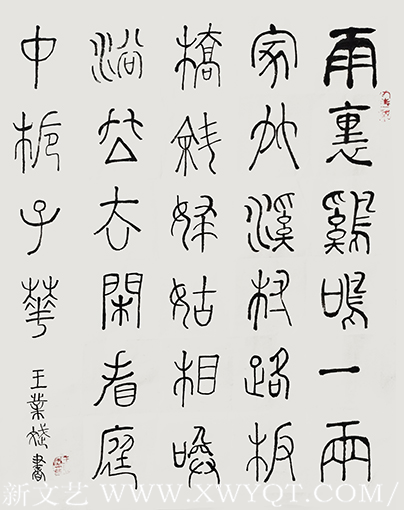 雨裏鷄鳴一兩
家竹溪村路板
橋斜婦姑相喚
浴蚕去閑看庭
中栀子華
王業書
新文艺 WWW.XWYQT.COM/